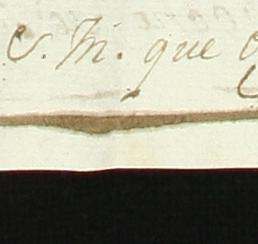 S. M. que